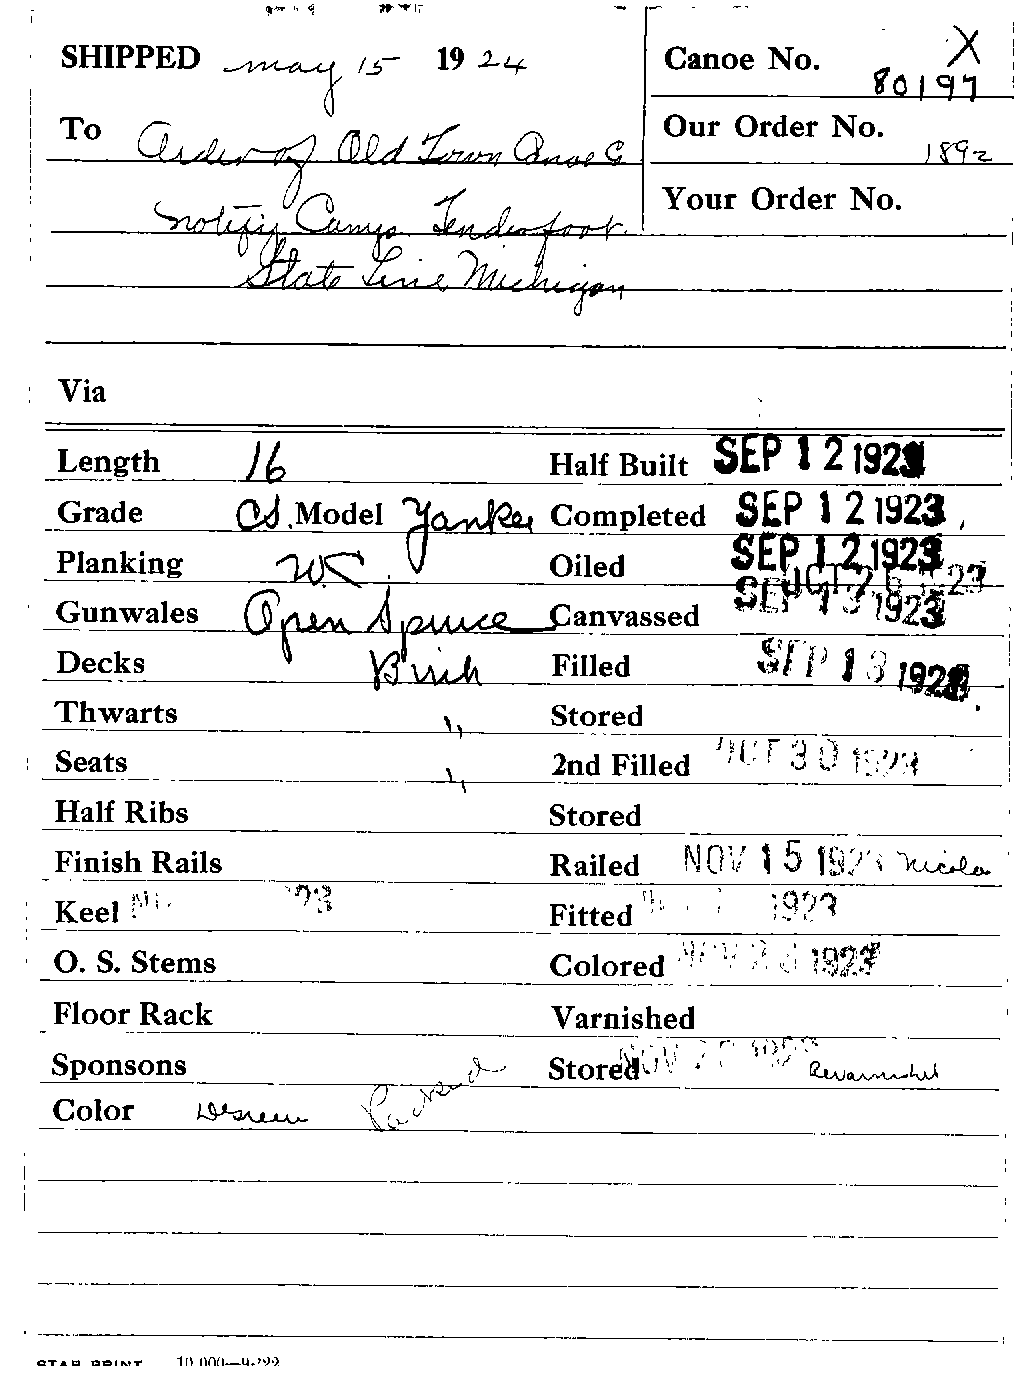 SHIPPED may 15 1924
Canoe No. X 80197
To Order of Old Town Canoe Co
Our Order No. 1892
Notify Camp Tenderfoot
Your Order No.
State Line Michigan
Via
Length 16 Half Built SEP 12 1923
Grade CS. Model Yankee Completed SEP 12 1923
Planking WC Oiled SEP 12 1923
Gunwales Open Spruce Canvassed SEP 13 1923
Decks Birch Filled SEP 13 1923
Thwarts " Stored
Seats " 2nd Filled OCT 30 1923
Half Ribs Stored
Finish Rails Railed NOV 15 1923 Nicola
Keel Fitted 1923
O. S. Stems Colored NOV 1923
Floor Rack Varnished
Sponsons Stored NOV Revarnished
Color DGreen Packed
STAR PRINT 10,000